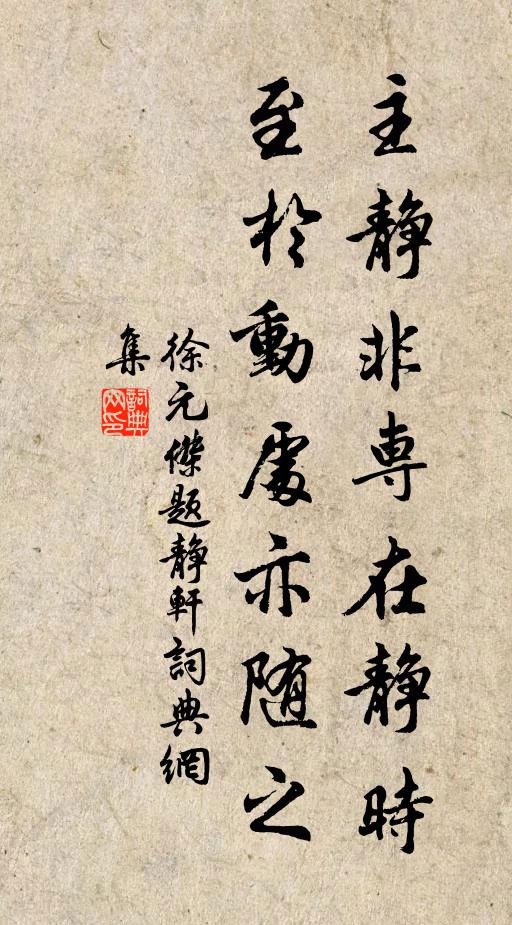 主静非専在静時
至於動處亦随之
徐元傑題静軒詞典網
集
詞典
网印